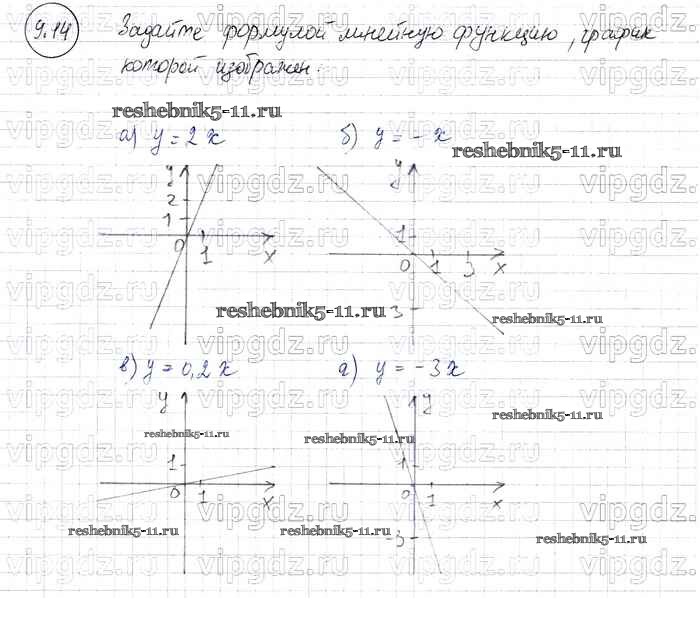 9.14 Задайте формулой линейную функцию, график
которой изображен.
reshebnik5-11.ru
а) y = 2x
б) y = - x
reshebnik5-11.ru
y
2
1
0 1 x
y
1
0 1 3 x
-3
reshebnik5-11.ru
reshebnik5-11.ru
в) y = 0,2x
г) y = -3x
reshebnik5-11.ru
y
1
0 1 x
reshebnik5-11.ru
reshebnik5-11.ru
y
1
0 1 x
-3
reshebnik5-11.ru
reshebnik5-11.ru
reshebnik5-11.ru
vipgdz.ru vipgdz.ru vipgdz.ru vipgdz.ru